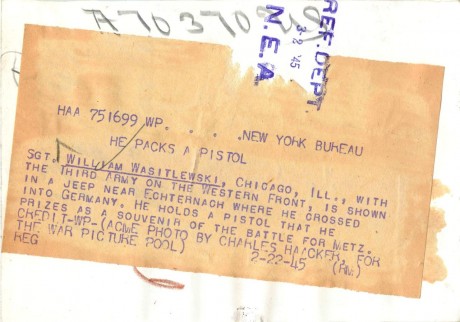 REF. DEPT
3-2 '45
N.E.A.
HAA 751699 WP. . . . .NEW YORK BUREAU
HE PACKS A PISTOL
SGT. WILLIAM WASITLEWSKI, CHICAGO, ILL., WITH
THE THIRD ARMY ON THE WESTERN FRONT, IS SHOWN
IN A JEEP NEAR ECHTERNACH WHERE HE CROSSED
INTO GERMANY. HE HOLDS A PISTOL THAT HE
PRIZES AS A SOUVENIR OF THE BATTLE FOR METZ.
CREDIT-WP-(ACME PHOTO BY CHARLES HAACKER, FOR
THE WAR PICTURE POOL) 2-22-45 (RM)
REG